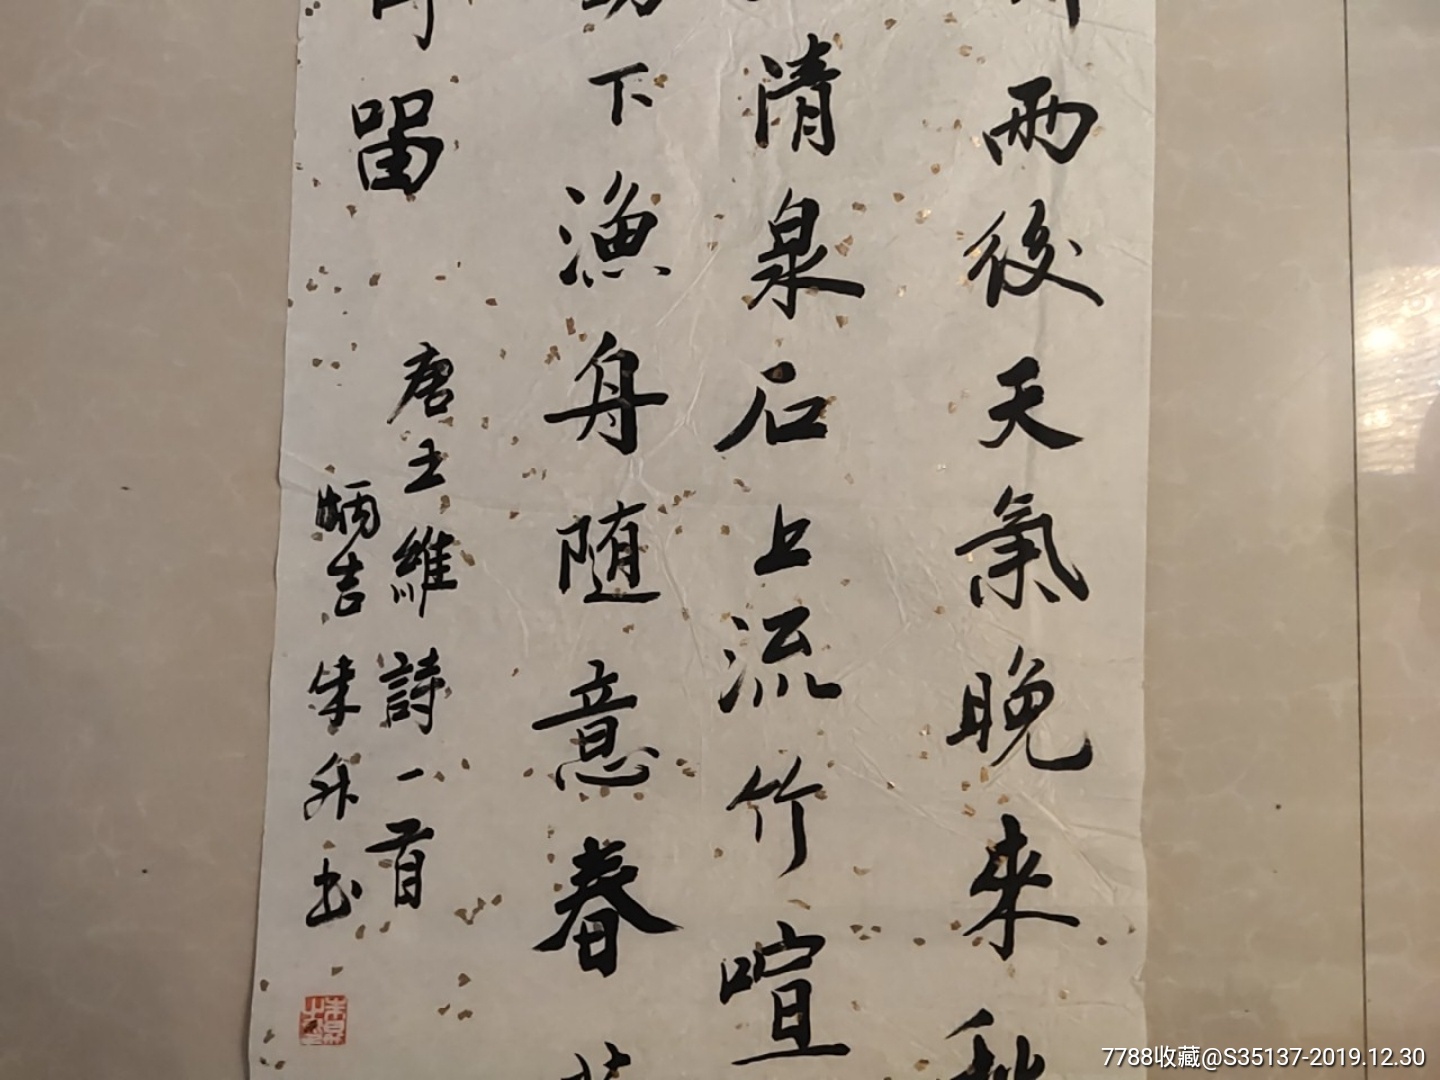 雨後天氣晚來秋
清泉石上流竹喧
下漁舟随意春
留
唐王維詩一首
炳吉 朱升书
7788收藏@S35137-2019.12.30